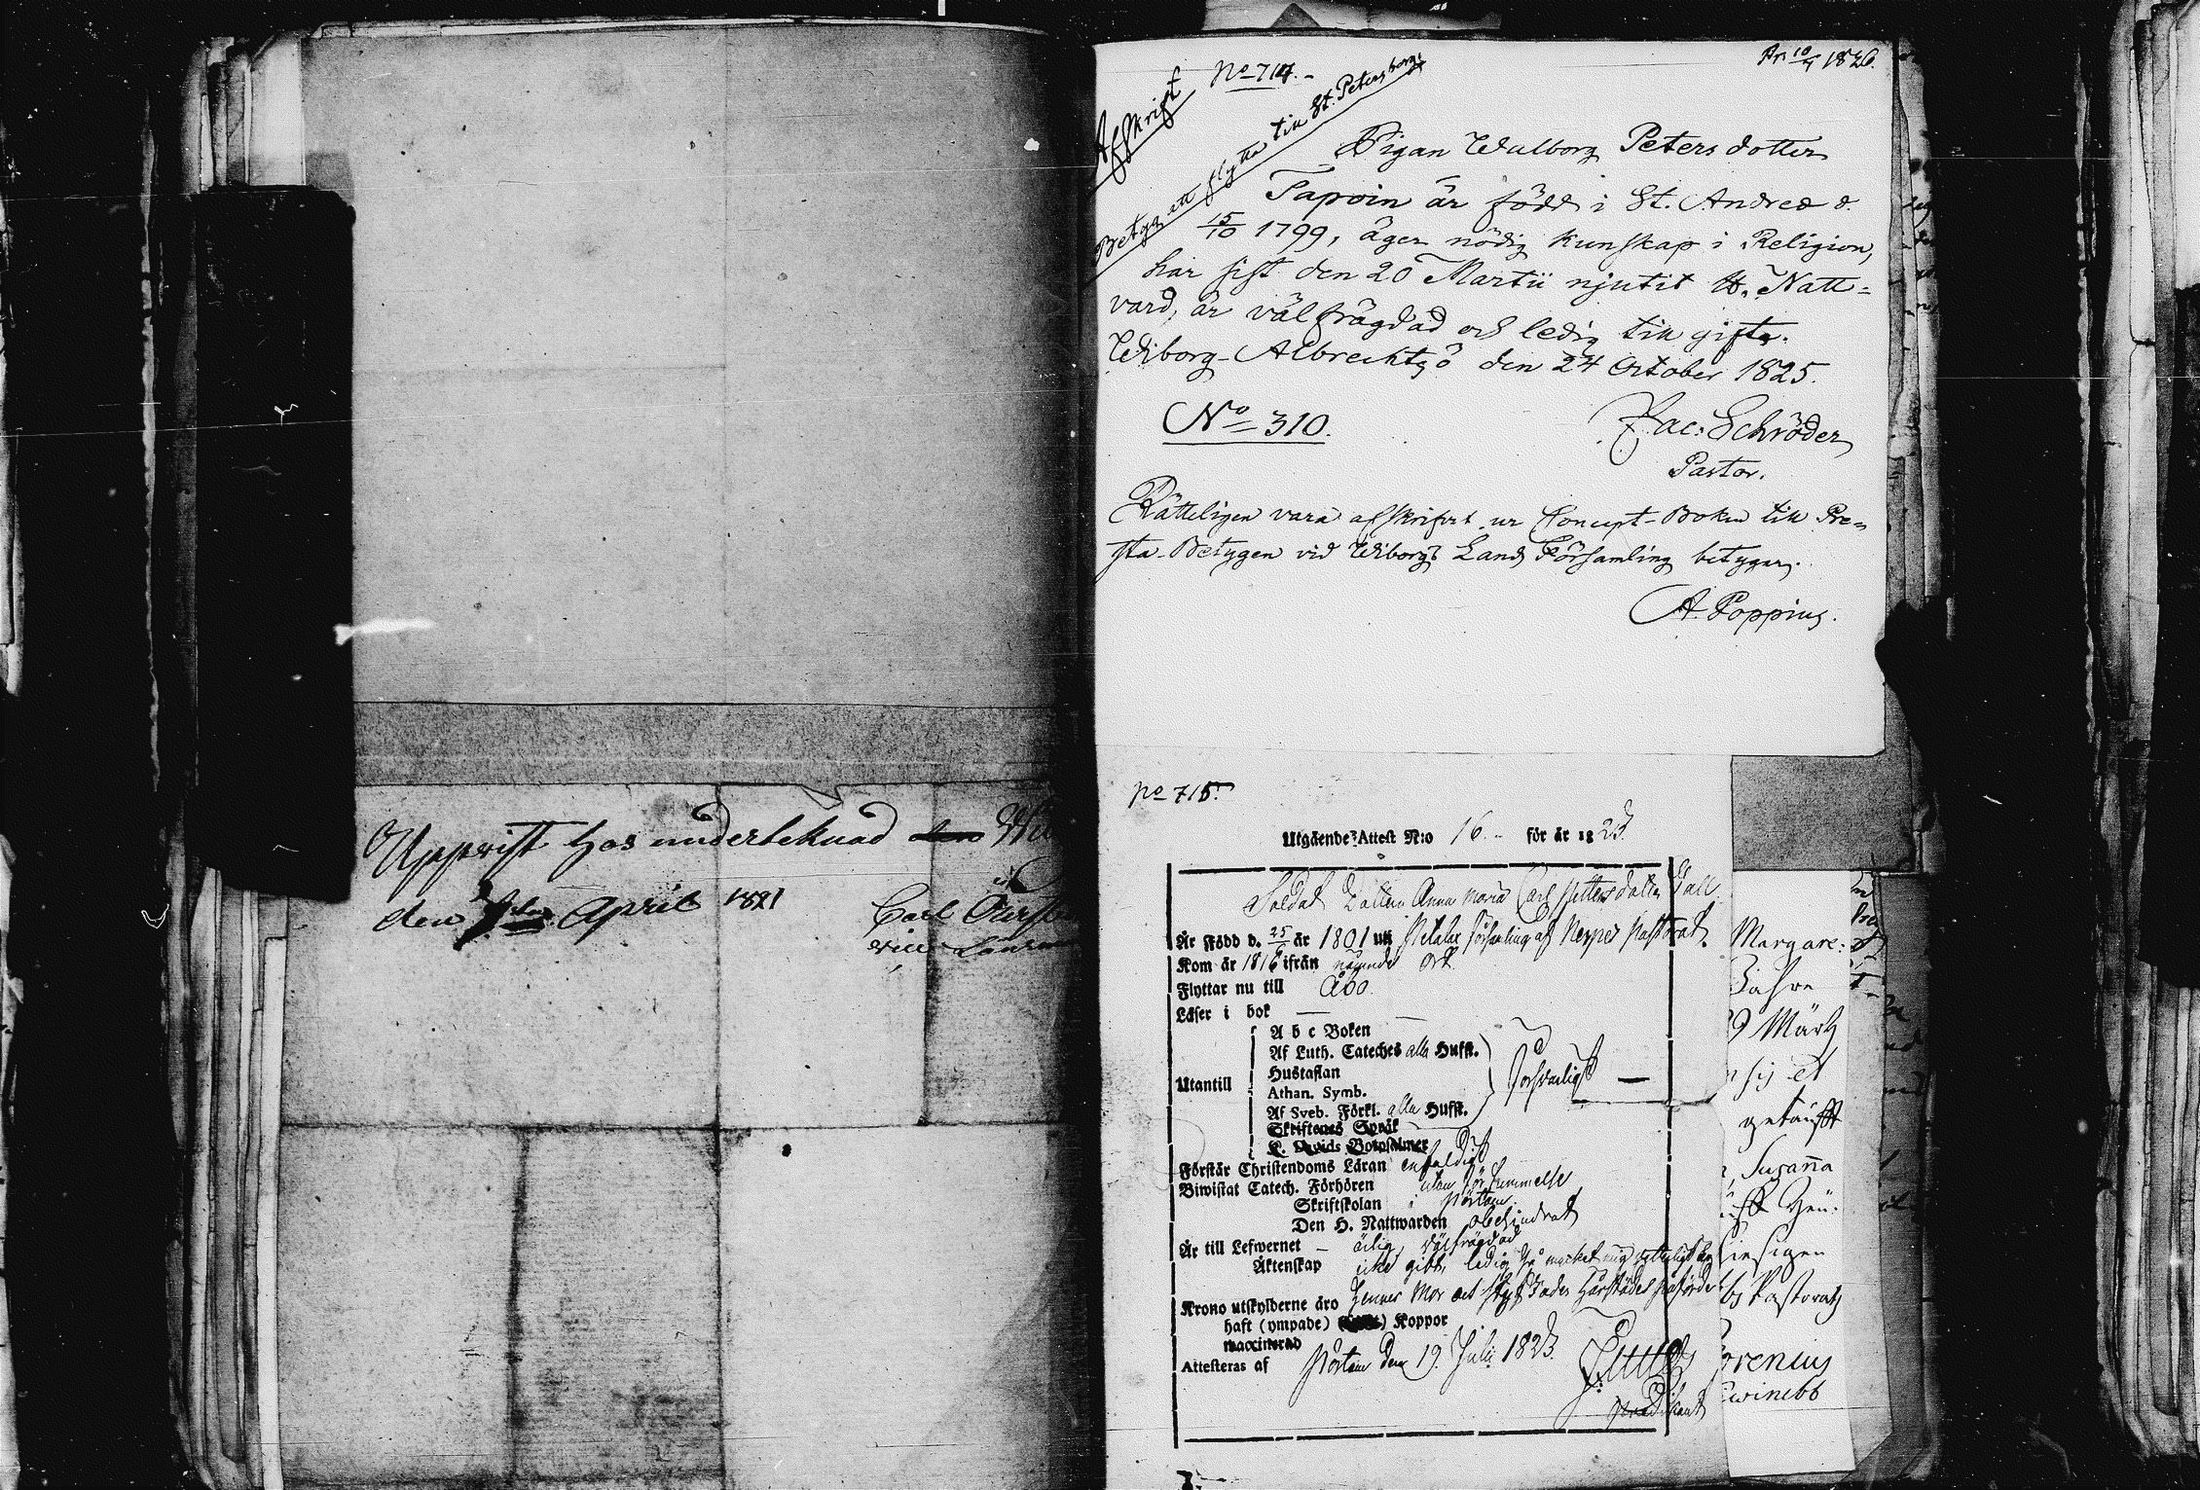 Uppvist hos underteknad
den 7de April 1821
Carl
No 714.
Pr 10/4 1826.
Afskrift
Betyg att flytta till St. Petersborg
Pigan Walborg Petersdotter
Tapoin är född i St. Andreæ d.
15/10 1799, äger nödig kunskap i Religion,
har sist den 20 Martii njutit H. Natt=
vard, är välfrägdad och ledig till gifte.
Wiborg-Albrechtsö den 24 October 1825.
No 310.
Jac: Schröder
Pastor.
Rätteligen vara afskrifvit ur Concept-Boken till Pre=
sta-Betygen vid Wiborgs Lands Församling betygar.
A. Poppius.
No 715.
Utgående Attest N:o 16. för år 1823
Soldat Dottern Anna Maria Carl Dotter
Är Född d. 25/6 år 1801 uti Petalax församling af Nerpes Pastorat.
Kom år 1816 ifrån nämnde ort
Flyttar nu till Åbo
Läser i bok —
A b c Boken
Af Luth. Cateches alla Hufst.
Hustaflan
Utantill
Athan. Symb.
Af Sveb. Förkl. alla Hufst.
försvarligt —
Skriftenes Språk
K. Davids Botpsalmer
Förstår Christendoms Läran enfaldigt
Biwistat Catech. Förhören utan försummelse
Skriftskolan i Pörtom
Den H. Nattwarden obehindrat
Är till Lefwernet — ärlig, välfrägdad
Äktenskap icke gift, ledig
Krono utskylderne äro
haft (ympade) Koppor
vaccinerad
Attesteras af Pörtom den 19. Juli 1823.
Predikant
Margare:
Jahre
9 Märtz
getaufft
Susanna
Pastorats